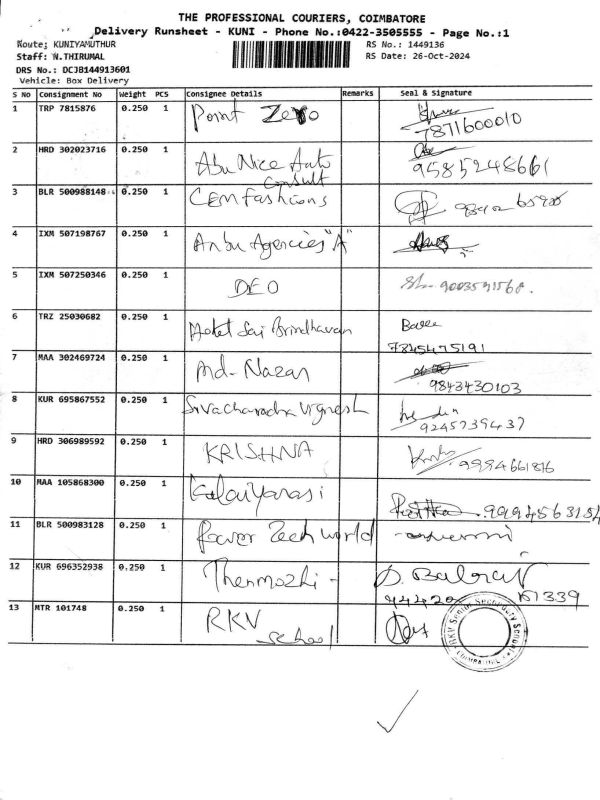 THE PROFESSIONAL COURIERS, COIMBATORE
Delivery Runsheet - KUNI - Phone No.:0422-3505555 - Page No.:1
Route; KUNIYAMUTHUR
RS No.: 1449136
Staff: N.THIRUMAL
RS Date: 26-Oct-2024
DRS No.: DCJB144913601
Vehicle: Box Delivery
S No Consignment No Weight PCS Consignee Details Remarks Seal & Signature
1 TRP 7815876 0.250 1 Point Zero
7871600010
2 HRD 302023716 0.250 1 Abu Nice Auto
Consult
9585248661
3 BLR 500988148 0.250 1 CEM Fashions
4 IXM 507198767 0.250 1 Anbu Agencies "A"
5 IXM 507250346 0.250 1 DEO
6 TRZ 25030682 0.250 1 Hotel Sai Brindhavan
7845475191
7 MAA 302469724 0.250 1 Md- Nazar
9843430103
8 KUR 695867552 0.250 1 Vignesh
9245739437
9 HRD 306989592 0.250 1 KRISHNA
9994661816
10 MAA 105868300 0.250 1 Kalaiyarasi
9994563154
11 BLR 500983128 0.250 1 Power Tech world
12 KUR 696352938 0.250 1 Thenmozhi -
13 MTR 101748 0.250 1 RKV
School
RKV Senior Secondary School